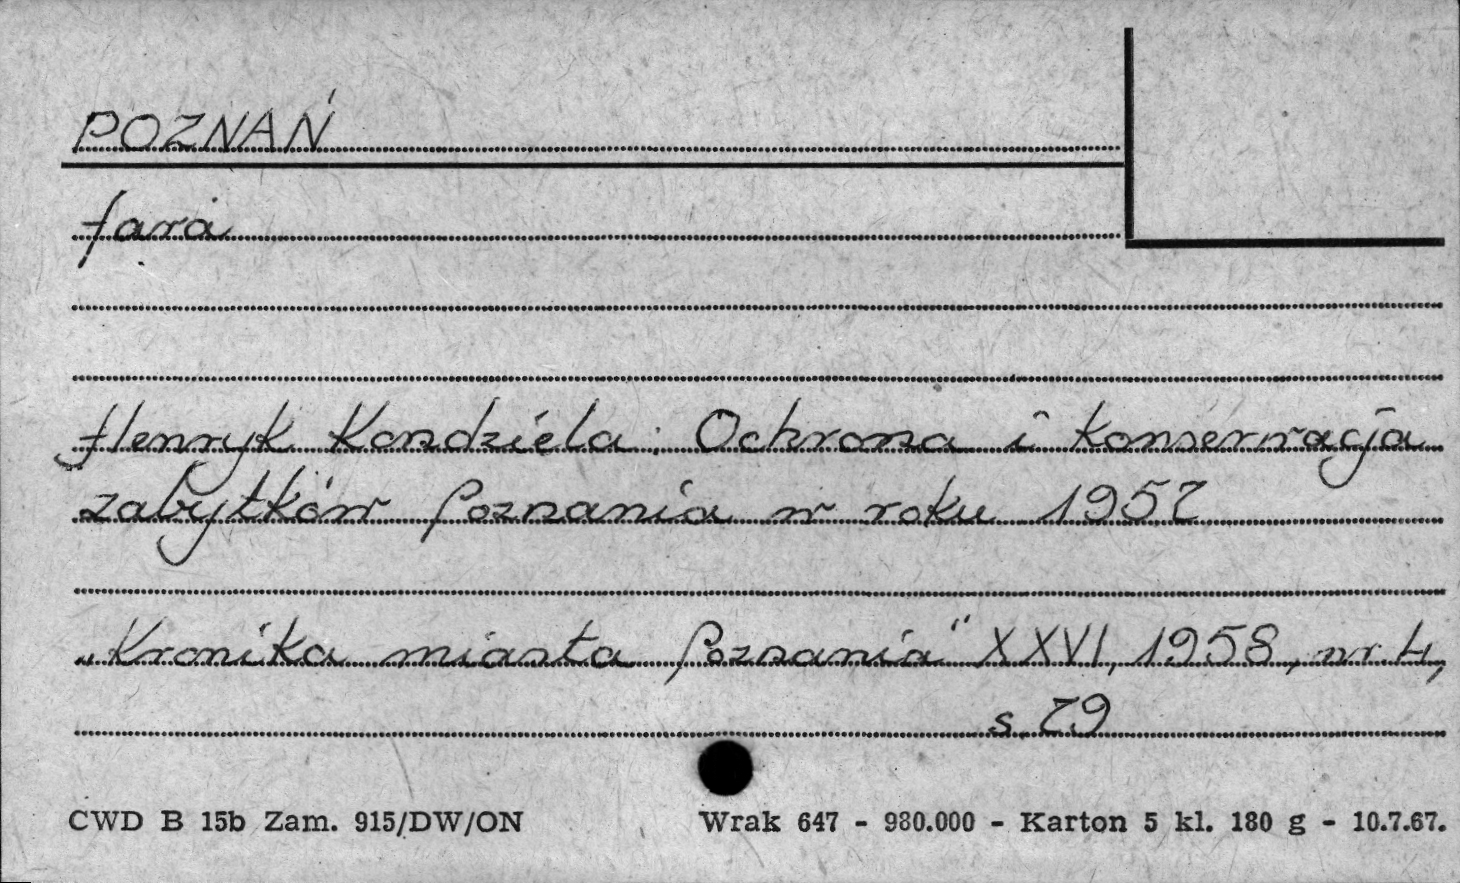 POZNAŃ
fara
Henryk Kondziela: Ochrona i konserwacja
zabytków Poznania w roku 1957
„Kronika miasta Poznania" XXVI, 1958, nr. 4,
s. 79
CWD B 15b Zam. 915/DW/ON Wrak 647 - 980.000 - Karton 5 kl. 180 g - 10.7.67.